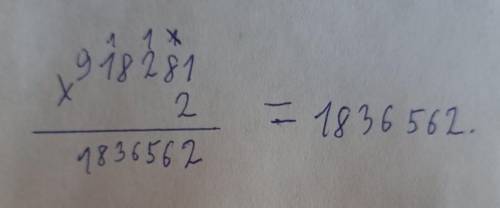 1 1 x
918281
x 2 = 1836562.
1836562